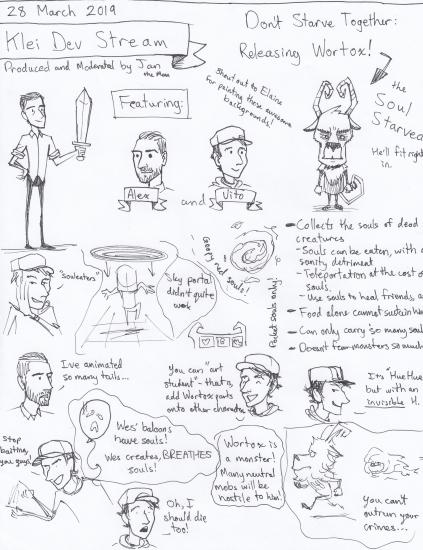 28 March 2019
Klei Dev Stream
Produced and Moderated by Jan
the Man
Don't Starve Together:
Releasing Wortox!
Featuring:
Shout out to Elaine
for painting these awesome
backgrounds!
the
Soul
Starved
He'll fit right
in.
Alex
and
Vito
"souleaters"
Sky portal
didn't quite
work
Goofy red souls!
Pocket souls only!
- Collects the souls of dead
creatures
- Souls can be eaten, with a
sanity detriment
- Teleportation at the cost of
souls.
- Use souls to heal friends, a
- Food alone cannot sustain
- Can only carry so many soul
- Doesn't fear monsters so much
I've animated
so many tails...
You can "art
student" - that is,
add Wortox parts
onto other character
It's "HueHue
but with an
invisible H.
Stop
baiting,
you guys!
Wes' baloons
have souls!
Wes creates, BREATHES
souls!
Oh, I
should die
too!
Wortox is
a monster!
Many neutral
mobs will be
hostile to him!
You can't
outrun your
crimes...